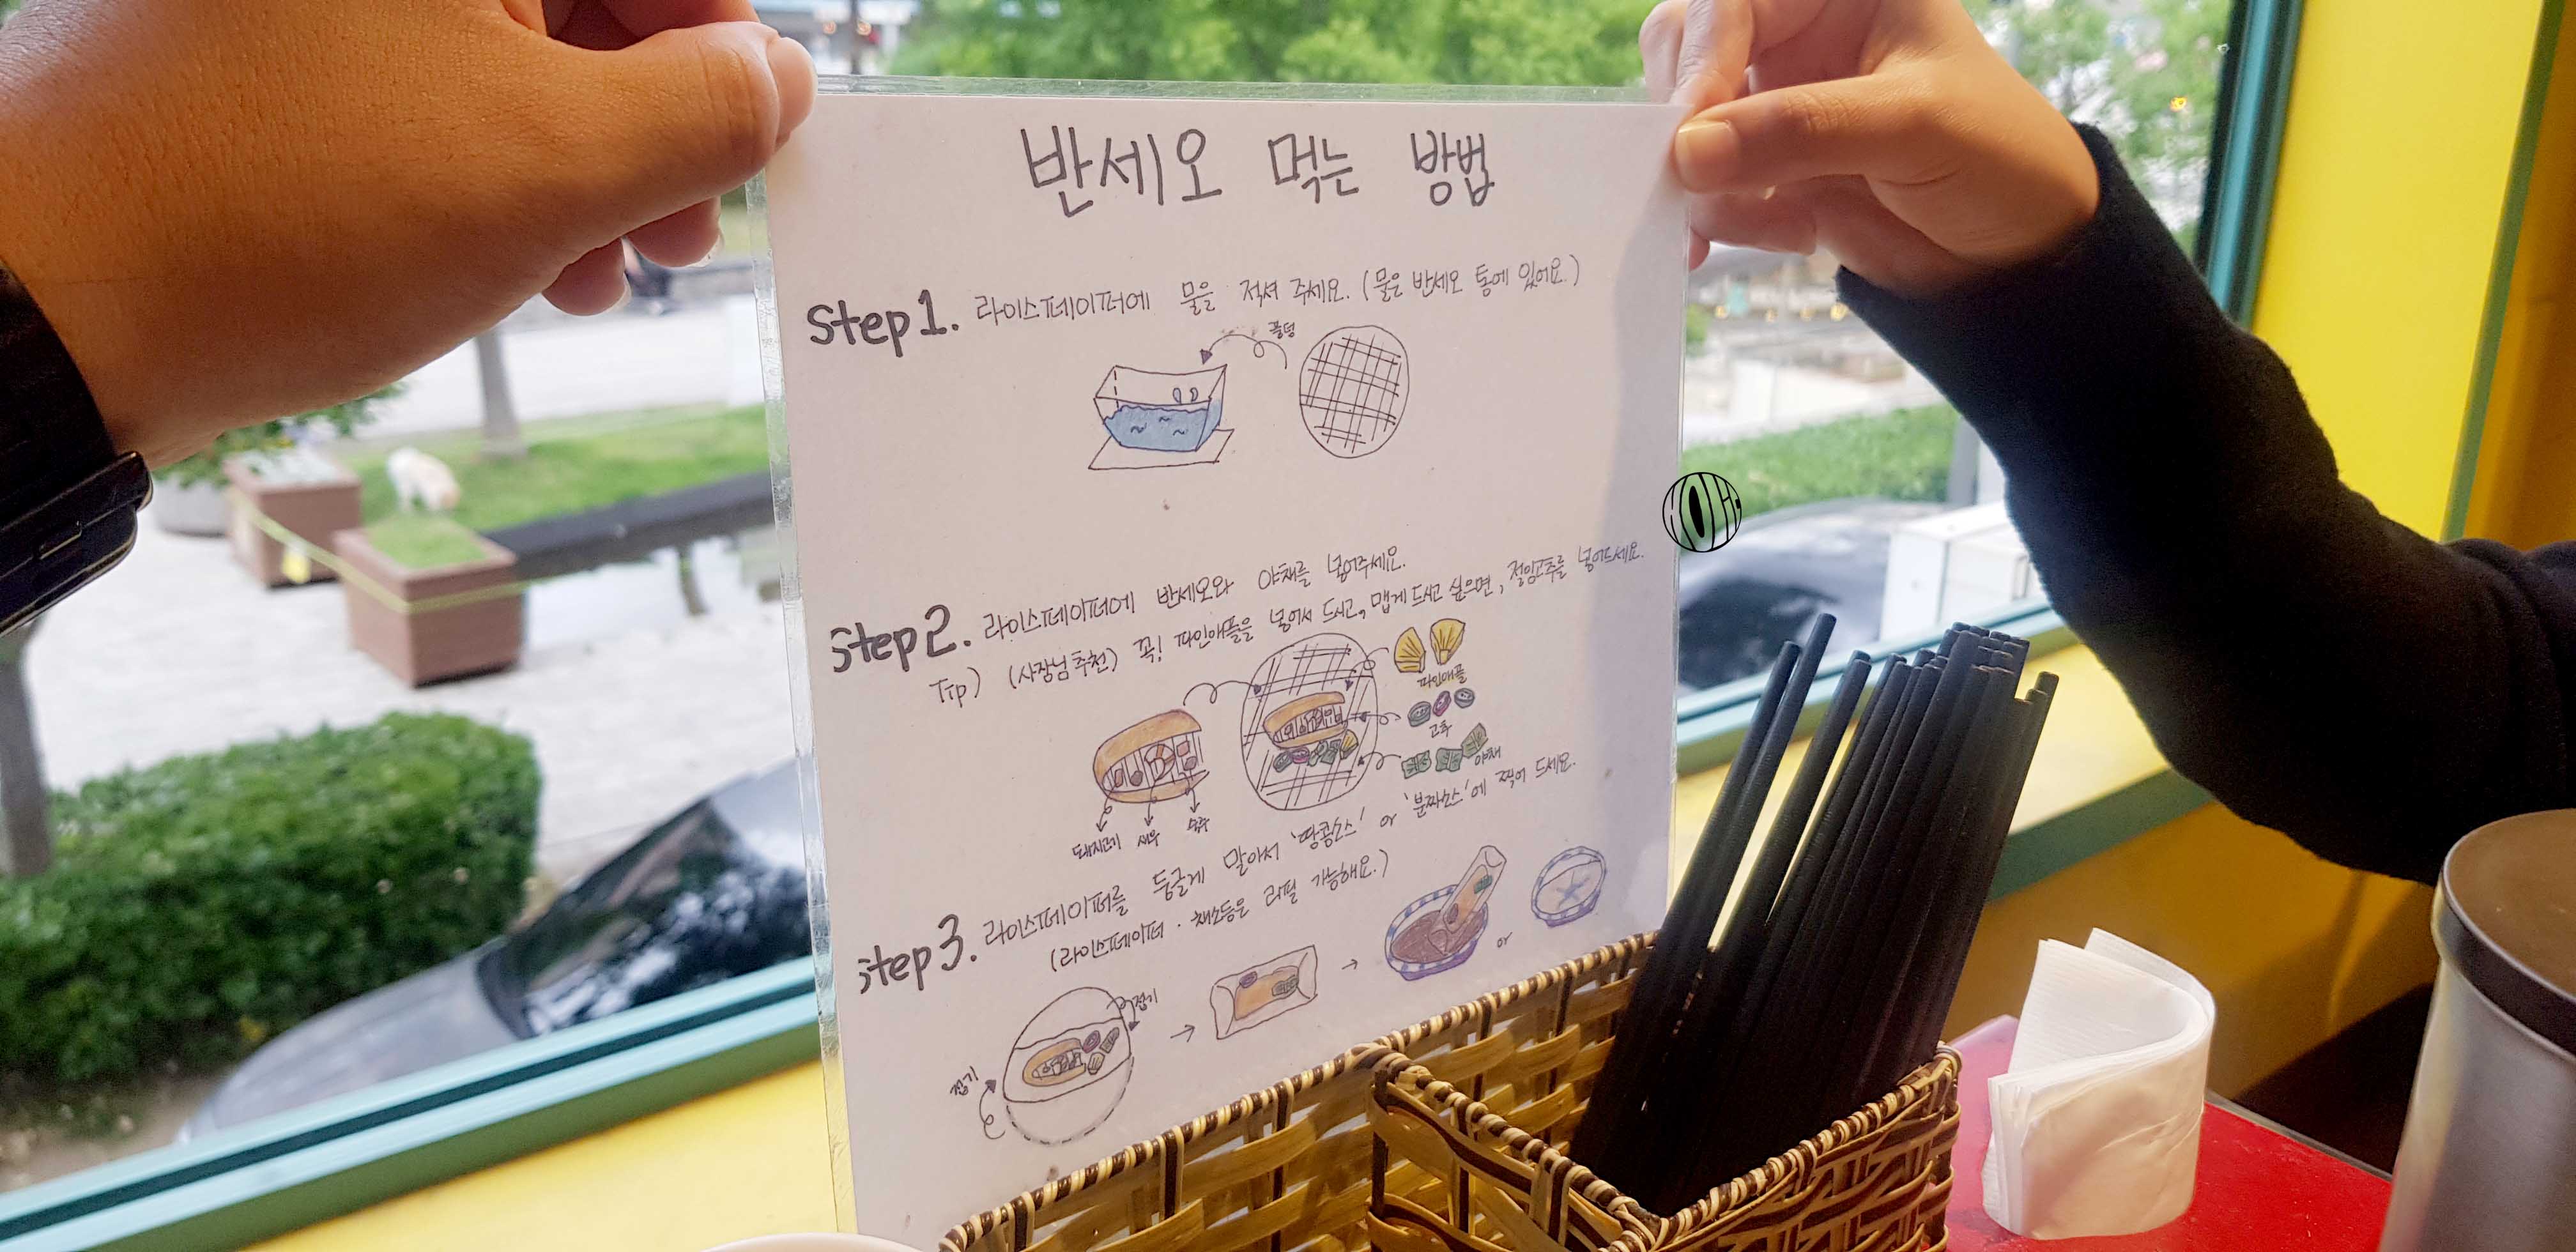 반세오 먹는 방법
Step1. 라이스페이퍼에 물을 적셔 주세요. (물은 반세오 통에 있어요.)
퐁덩
Step2. 라이스페이퍼에 반세오와 야채를 넣어주세요.
Tip) (사장님 추천) 꼭! 파인애플을 넣어서 드시고, 맵게 드시고 싶으면, 절임고추를 넣어드세요.
파인애플
고추
야채
돼지고기 새우 숙주
Step3. 라이스페이퍼를 둥글게 말아서 '땅콩소스' or '분짜소스'에 찍어 드세요.
(라이스페이퍼 · 채소등은 리필 가능해요.)
접기
접기
or
HOLiC